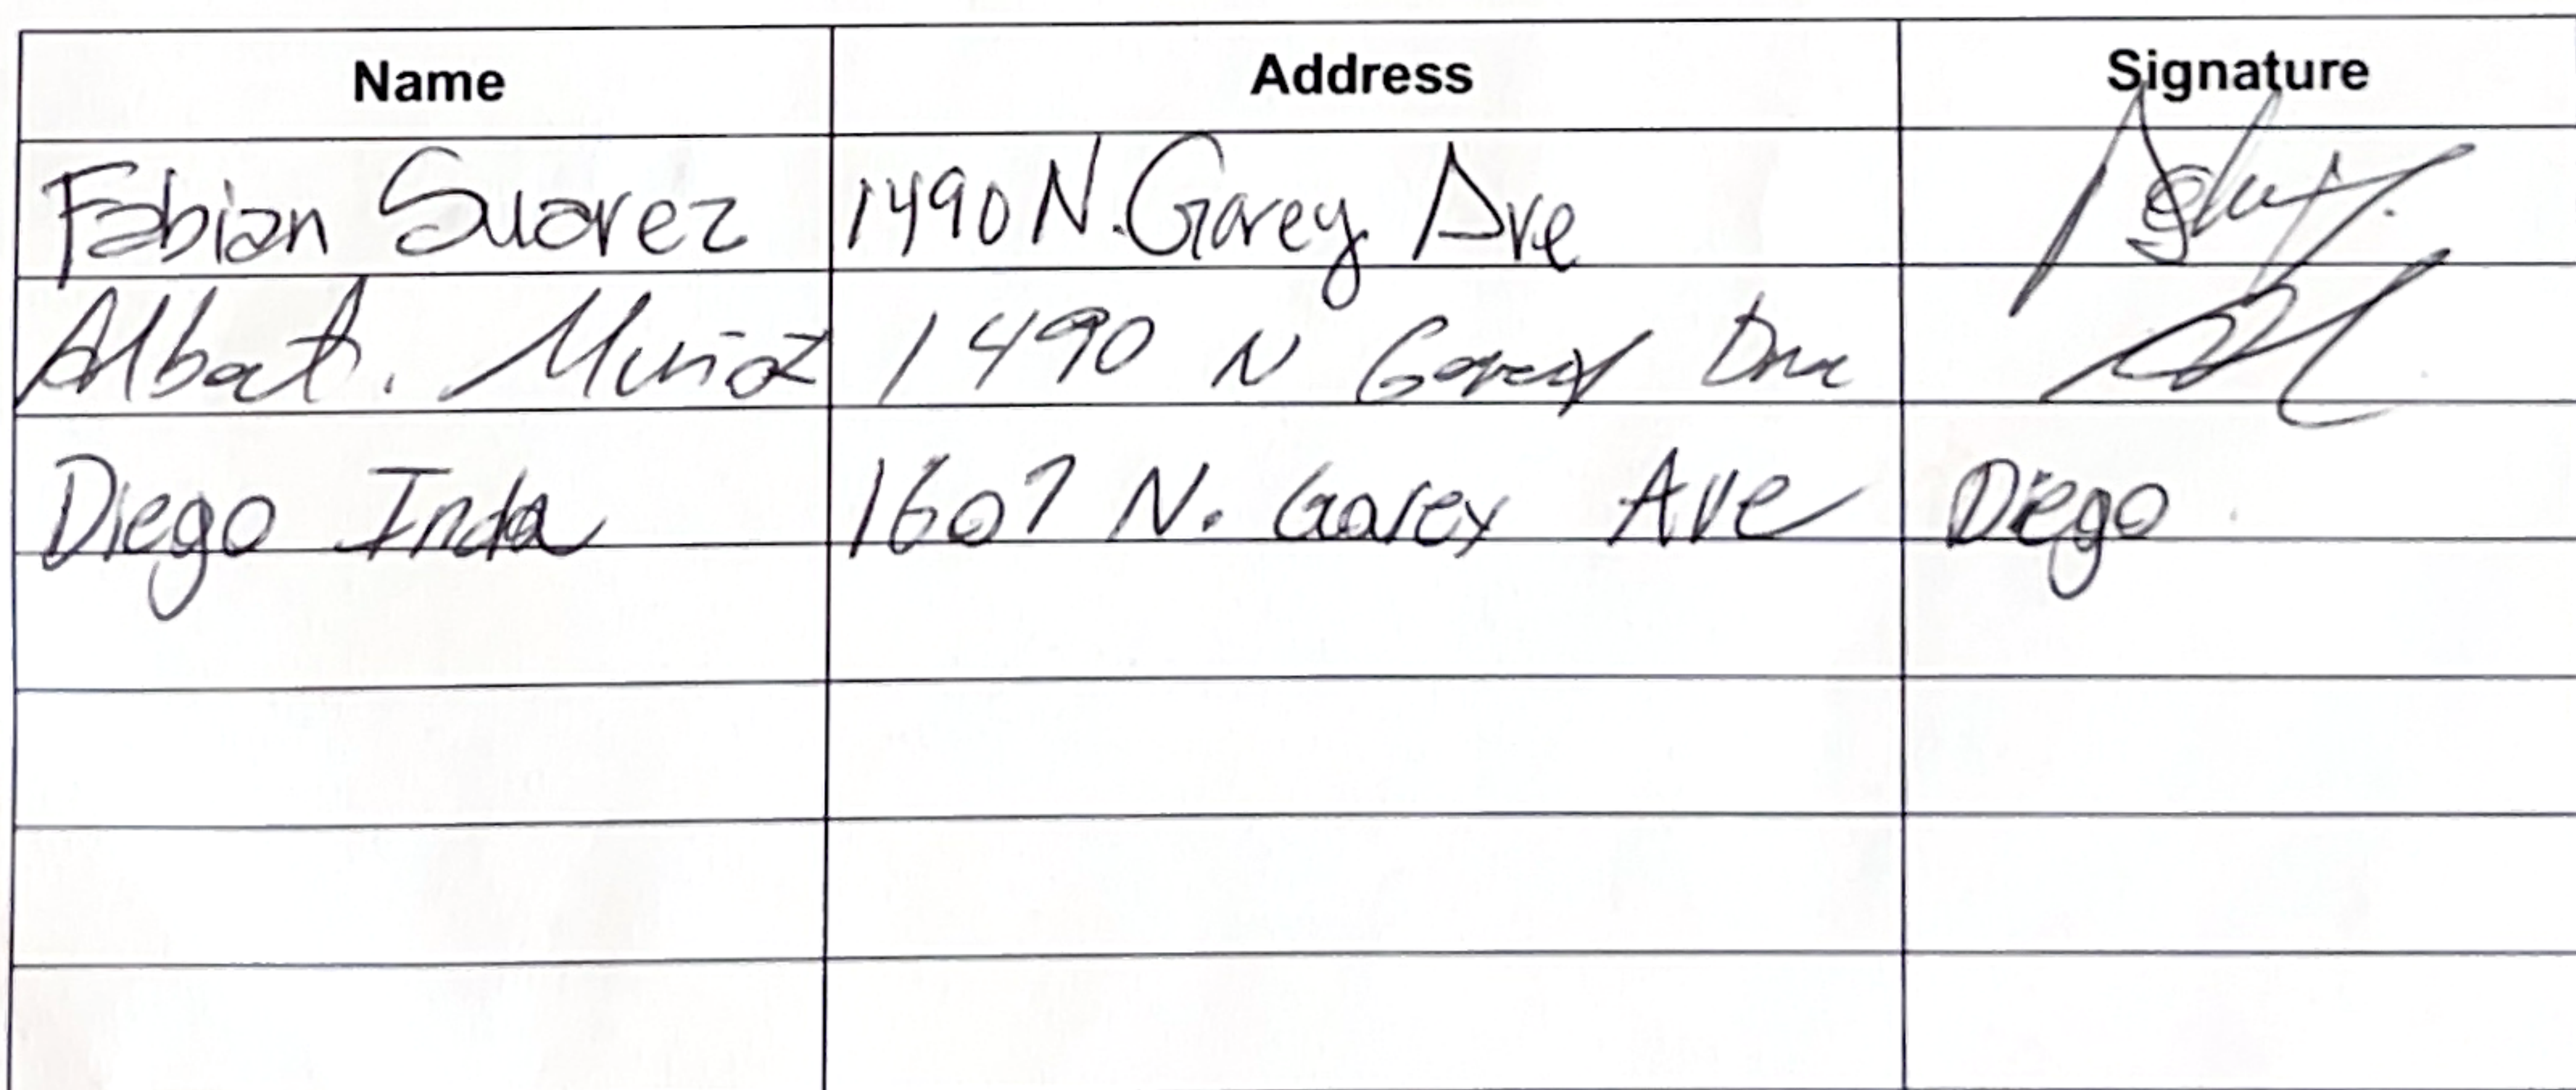 Name Address Signature
Fabian Suarez 1490 N. Garey Ave
Albert. Muñoz 1490 N Garey
Diego Inda 1607 N. Garey Ave Diego